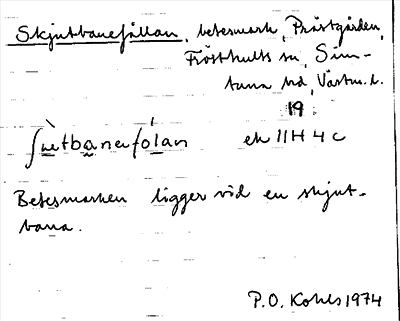 Skjutbanefållan, betesmark, Prästgården,
Frösthults sn, Sim-
tuna hd, Västm. l.
19
ʃùtbanefólan ek 11H 4c
Betesmarken ligger vid en skjut-
bana.
P.O. Kohls 1974